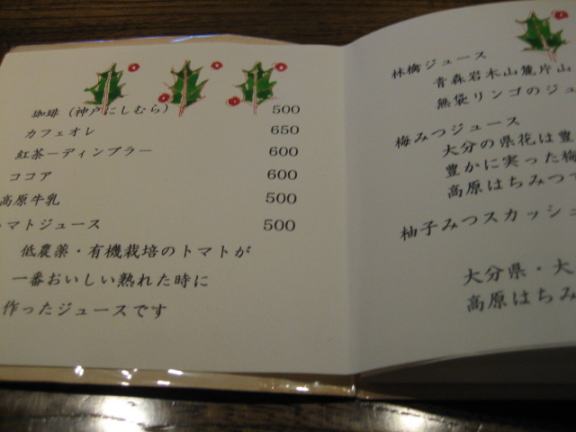 珈琲(神戸にしむら) 500
カフェオレ 650
紅茶ーディンブラー 600
ココア 600
高原牛乳 500
トマトジュース 500
低農薬・有機栽培のトマトが
一番おいしい熟れた時に
作ったジュースです
林檎ジュース
青森岩木山麓片山
無袋リンゴのジュ
梅みつジュース
大分の県花は豊
豊かに実った梅
高原はちみつで
柚子みつスカッシュ
大分県・大
高原はちみ